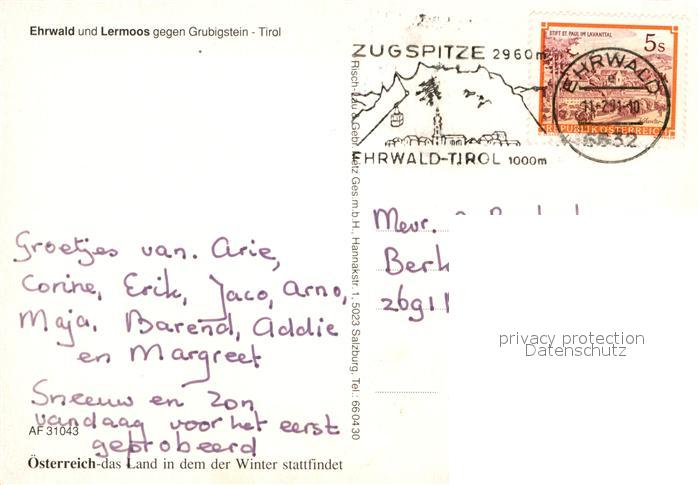 Ehrwald und Lermoos gegen Grubigstein - Tirol
ZUGSPITZE 2960m
EHRWALD-TIROL 1000m
STIFT ST. PAUL IM LAVANTTAL
5s
REPUBLIK ÖSTERREICH
EHRWALD
6632
Risch-Lau & Gebr. Metz Ges.m.b.H., Hannakstr. 1, 5023 Salzburg, Tel.: 660430
Groetjes van. Arie,
Corine, Erik, Jaco, Arno,
Maja, Barend, Addie
en Margreet
Sneeuw en zon
vandaag voor het eerst
geprobeerd
AF 31043
Österreich-das Land in dem der Winter stattfindet
Mevr.
Berk
2691
privacy protection
Datenschutz